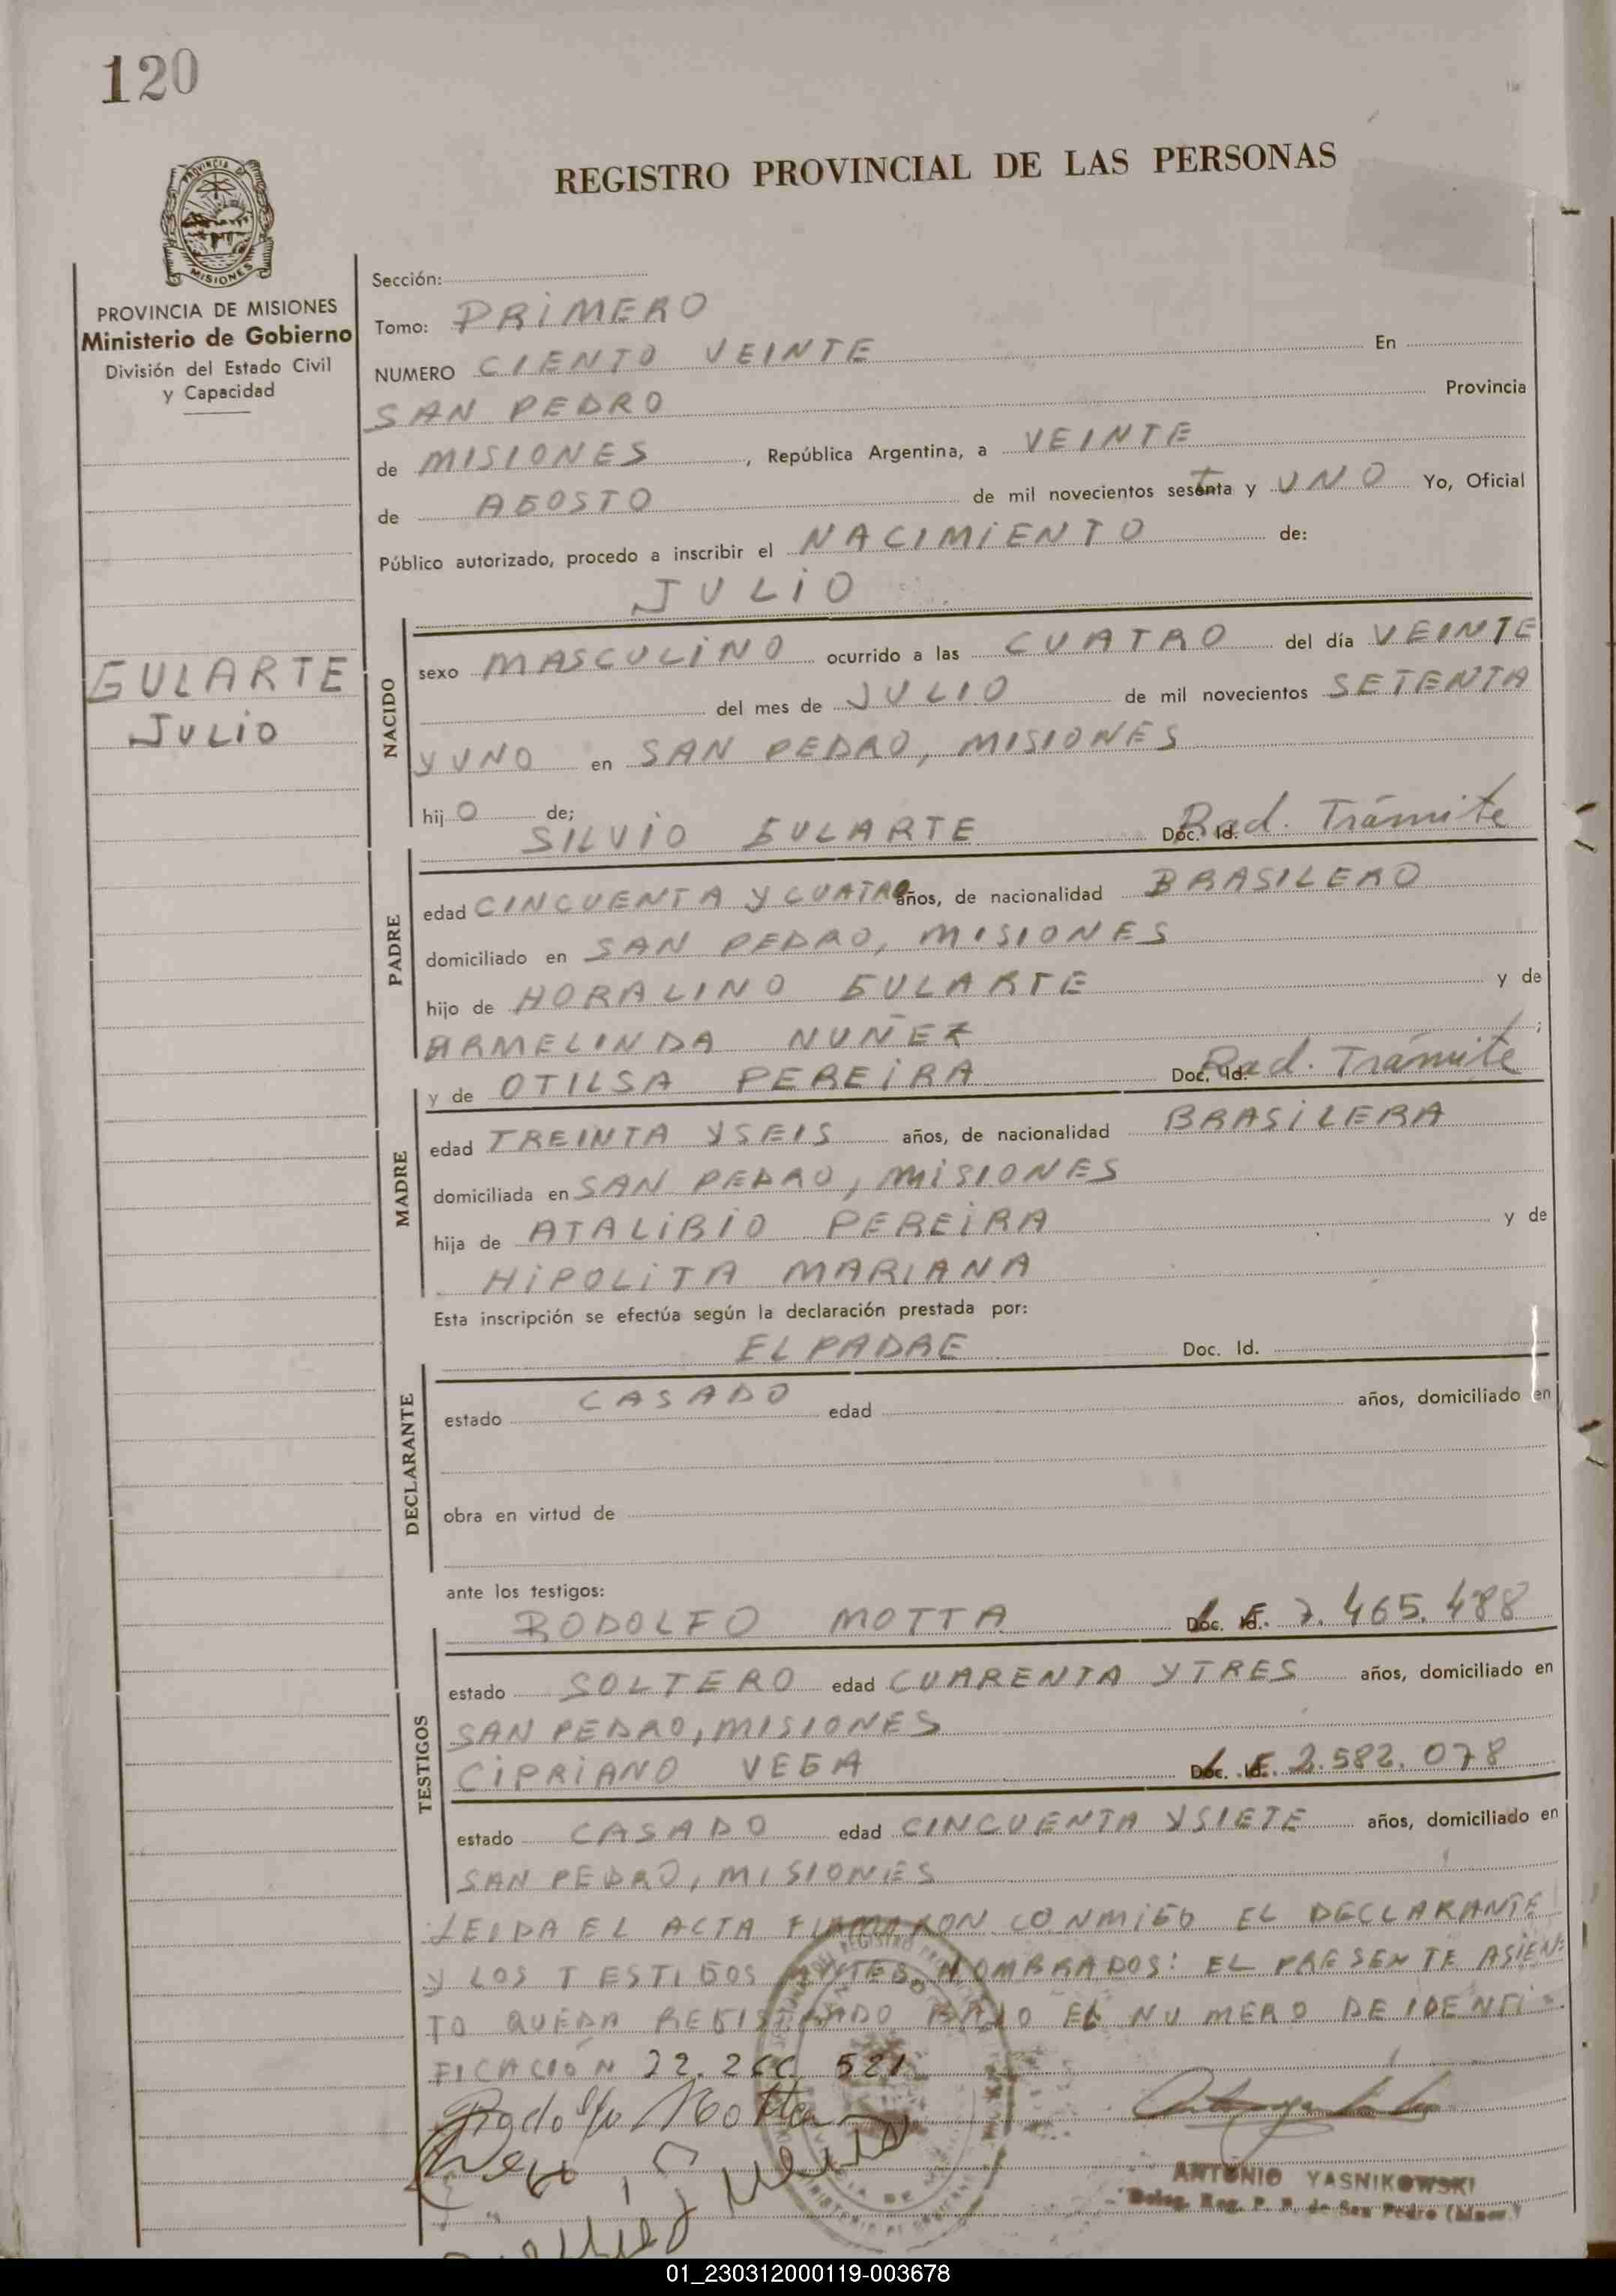 120
REGISTRO PROVINCIAL DE LAS PERSONAS
PROVINCIA DE
MISIONES
PROVINCIA DE MISIONES
Ministerio de Gobierno
División del Estado Civil
y Capacidad
GULARTE
JULIO
Sección:
Tomo: PRIMERO
NUMERO CIENTO VEINTE En
SAN PEDRO Provincia
de MISIONES, República Argentina, a VEINTE
de AGOSTO de mil novecientos setenta y UNO Yo, Oficial
Público autorizado, procedo a inscribir el NACIMIENTO de:
JULIO
NACIDO
sexo MASCULINO ocurrido a las CUATRO del día VEINTE
del mes de JULIO de mil novecientos SETENTA
Y UNO en SAN PEDRO, MISIONES
hijO de;
SILVIO GULARTE Doc. Id. Rad. Trámite
PADRE
edad CINCUENTA Y CUATRO años, de nacionalidad BRASILERO
domiciliado en SAN PEDRO, MISIONES
hijo de HORALINO GULARTE y de
ARMELINDA NUÑEZ;
y de OTILSA PEREIRA Doc. Id. Rad. Trámite
MADRE
edad TREINTA Y SEIS años, de nacionalidad BRASILERA
domiciliada en SAN PEDRO, MISIONES
hija de ATALIBIO PEREIRA y de
HIPOLITA MARIANA
Esta inscripción se efectúa según la declaración prestada por:
EL PADRE Doc. Id.
DECLARANTE
estado CASADO edad años, domiciliado en
obra en virtud de
ante los testigos:
RODOLFO MOTTA Doc. Id. L.E. 7.465.488
TESTIGOS
estado SOLTERO edad CUARENTA Y TRES años, domiciliado en
SAN PEDRO, MISIONES
CIPRIANO VEGA Doc. Id. L.E. 2.582.078
estado CASADO edad CINCUENTA Y SIETE años, domiciliado en
SAN PEDRO, MISIONES
LEIDA EL ACTA FIRMARON CONMIGO EL DECLARANTE
Y LOS TESTIGOS ANTES NOMBRADOS: EL PRESENTE ASIEN-
TO QUEDA REGISTRADO BAJO EL NUMERO DE IDENTI-
FICACIÓN 22.266.521
Rodolfo Motta
ANTONIO YASNIKOWSKI
Deleg. Reg. P. P. de San Pedro (Mnes.)
01_230312000119-003678